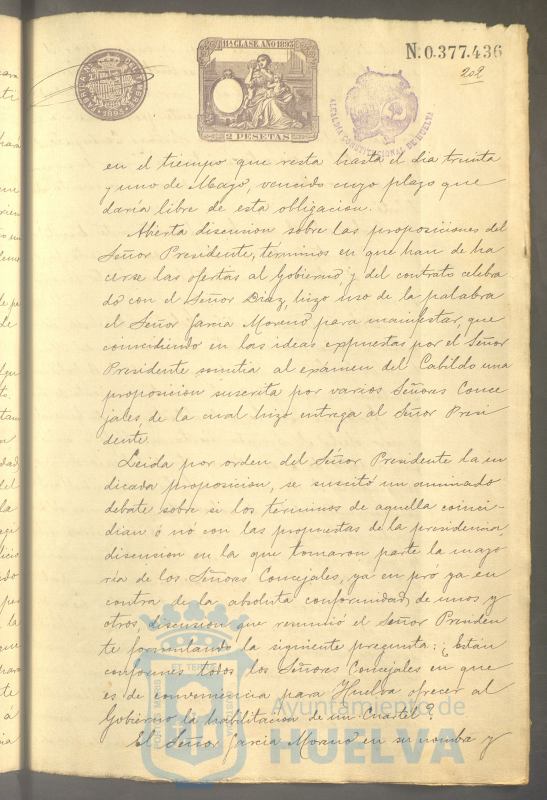 11ª CLASE AÑO 1893
2 PESETAS
N. 0.377.436
202
ALCALDIA CONSTITUCIONAL DE HUELVA
en el tiempo que resta hasta el dia treinta
y uno de Mayo, vencido cuyo plazo que
daría libre de esta obligacion.
Abierta discusion sobre las proposiciones del
Señor Presidente, términos en que han de ha
cerse las ofertas al Gobierno y del contrato celebra
do con el Señor Diaz, hizo uso de la palabra
el Señor Garcia Moreno para manifestar, que
coincidiendo en las ideas expuestas por el Señor
Presidente somitia al exámen del Cabildo una
proposicion suscrita por varios Señores Conce
jales, de la cual hizo entrega al Señor Presi
dente.
Leida por orden del Señor Presidente la in
dicada proposicion, se suscitó un animado
debate sobre si los términos de aquella coinci-
dian ó nó con las propuestas de la presidencia,
discusion en la que tomaron parte la mayo
ria de los Señores Concejales, ya en pró ya en
contra de la absoluta conformidad de unos y
otros, discusion que resumió el Señor Presiden
te formulando la siguiente pregunta: ¿Están
conformes todos los Señores Concejales en que
es de conveniencia para Huelva ofrecer al
Gobierno la habilitacion de un Cuartel?
El Señor Garcia Moreno en su nombre y
Ayuntamiento de
HUELVA